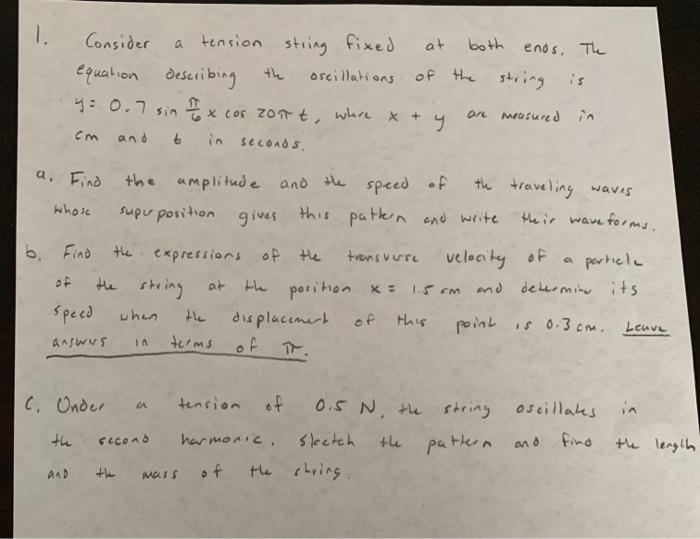 1. Consider a tension string fixed at both ends. The
equation describing the oscillations of the string is
y = 0.7 sin π/6 x cos 20π t, where x + y are measured in
cm and t in seconds.
a. Find the amplitude and the speed of the traveling waves
whose superposition gives this pattern and write their waveforms.
b. Find the expressions of the transverse velocity of a particle
of the string at the position x = 1.5 cm and determine its
speed when the displacement of this point is 0.3 cm. Leave
answers in terms of π.
C. Under a tension of 0.5 N, the string oscillates in
the second harmonic. Sketch the pattern and find the length
and the mass of the string.